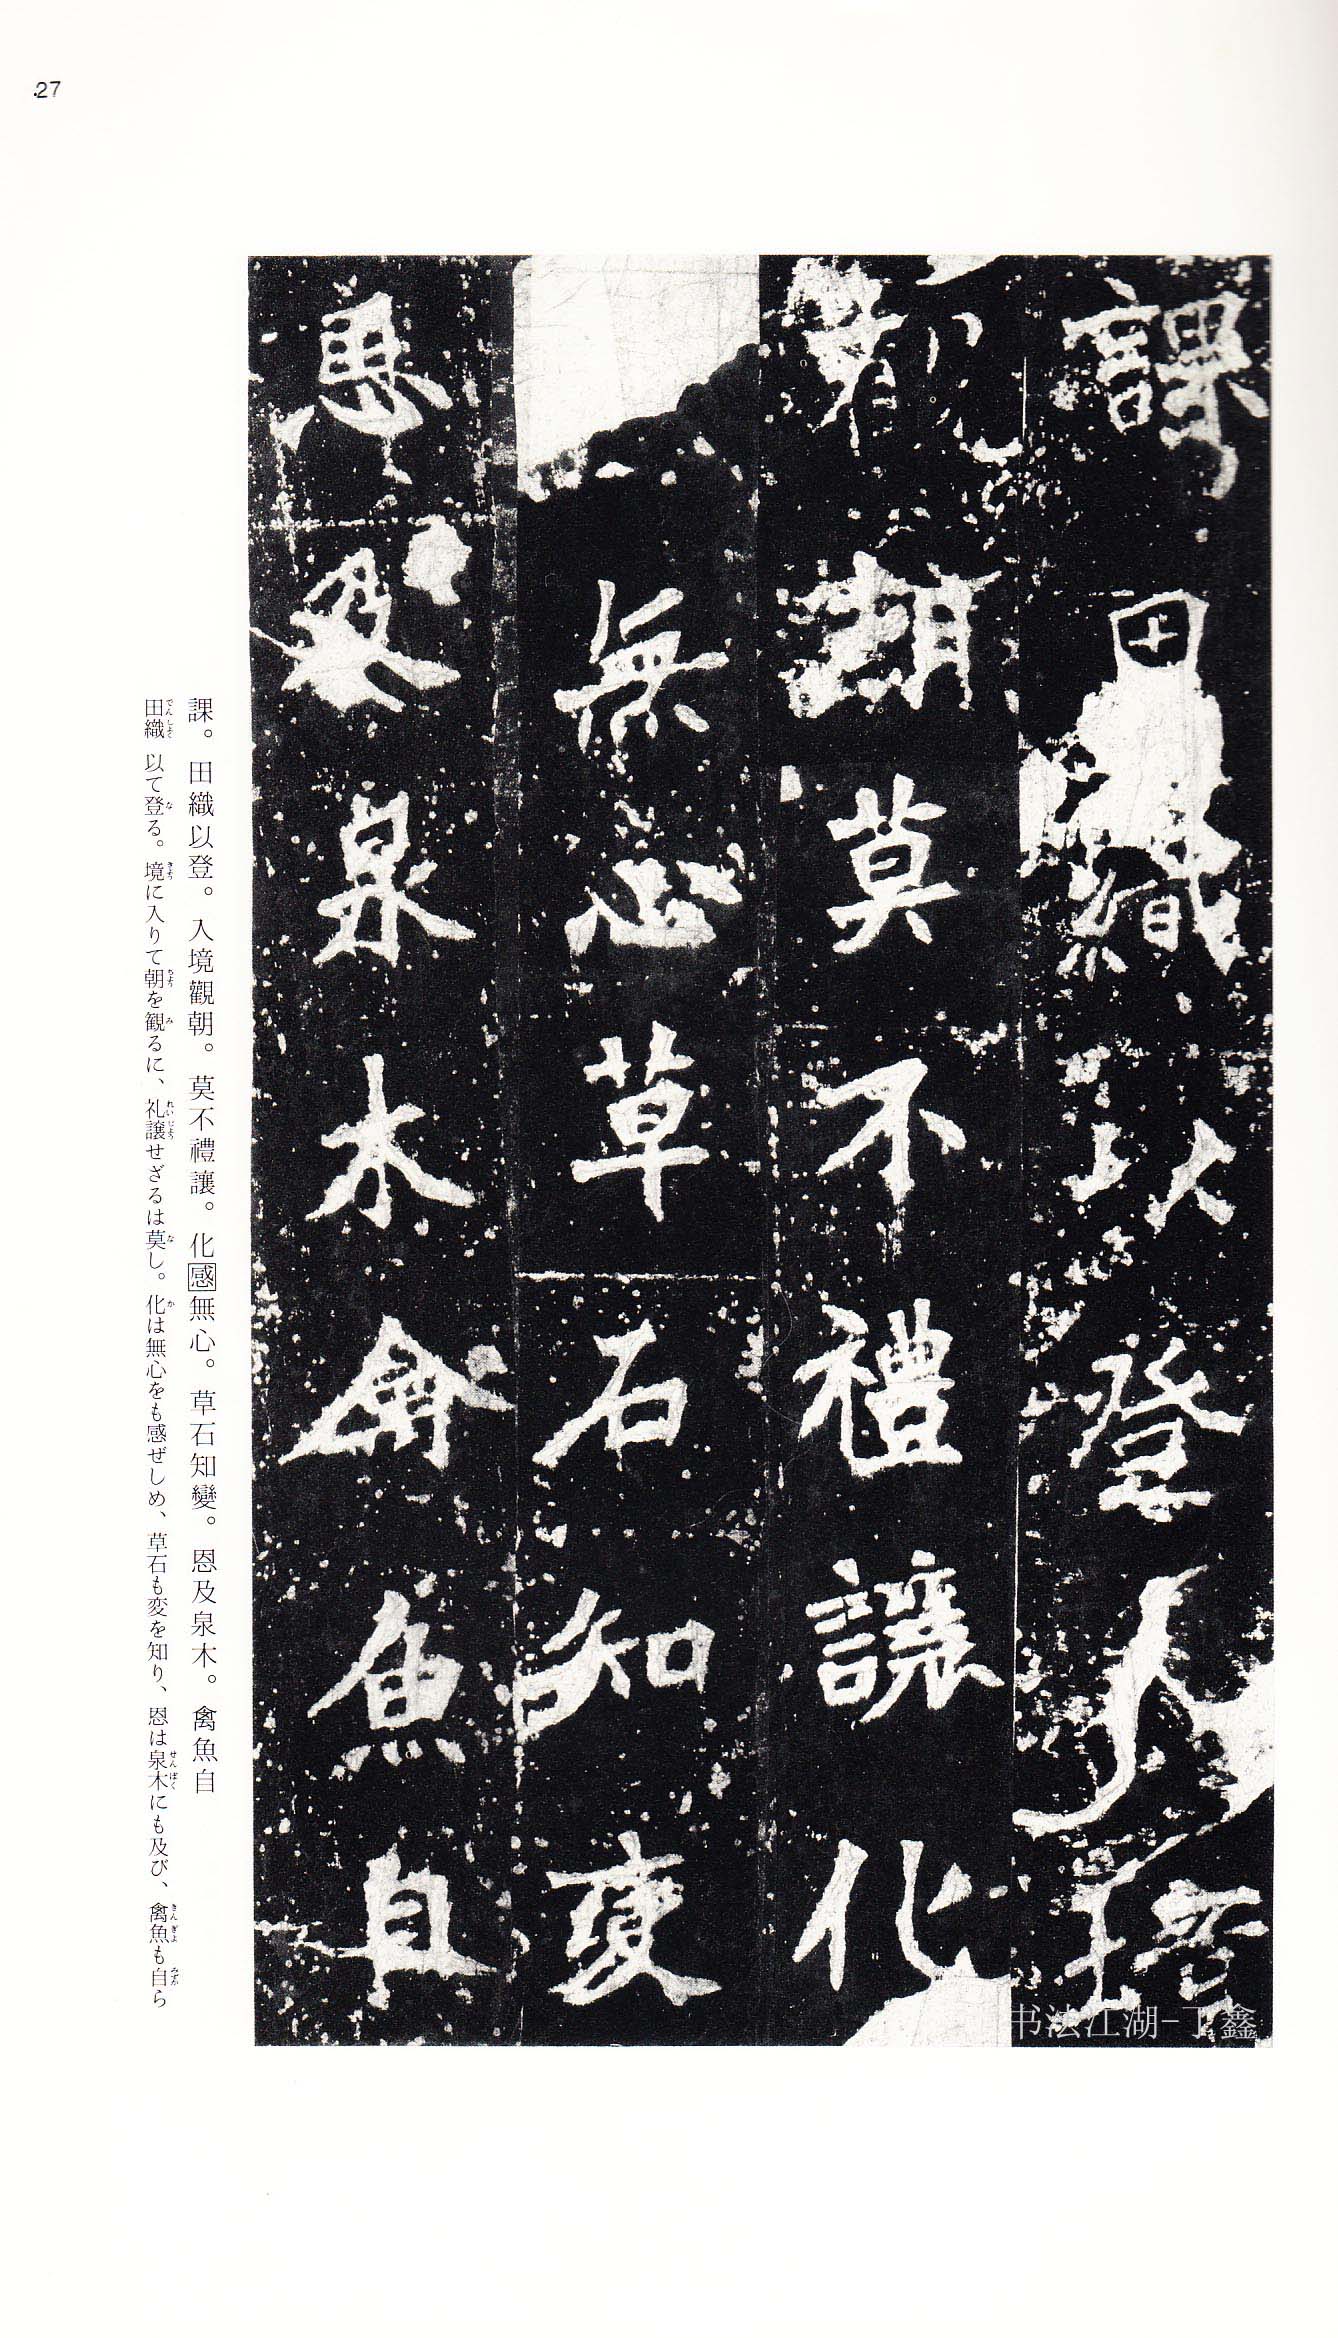 27
課田織以登入境
觀朝莫不禮讓化
無心草石知變
恩及泉木禽魚自
課。田織以登。入境觀朝。莫不禮讓。化感無心。草石知變。恩及泉木。禽魚自
田織以て登る。境に入りて朝を観るに、礼譲せざるは莫し。化は無心をも感ぜしめ、草石も変を知り、恩は泉木にも及び、禽魚も自ら
书法江湖-丁鑫